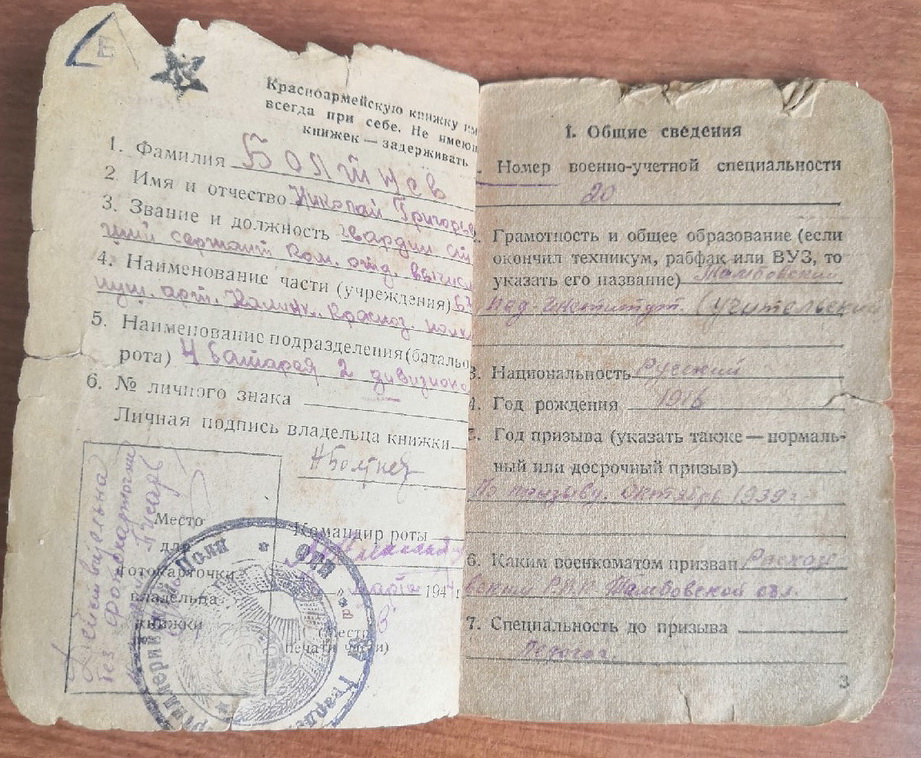 Красноармейскую книжку им
всегда при себе. Не имею
книжек — задерживать
1. Фамилия Болтнев
2. Имя и отчество Николай Григорье
3. Звание и должность гвардии ст
ший сержант Ком. отд. вычисл
4. Наименование части (учреждения)
арт. Краснoз. полк
5. Наименование подразделения (батальо
рота) 4 батарея 2 дивизиона
6. № личного знака
Личная подпись владельца книжки
НБолтнев
Действительна
без фотокарточки
Место
для
фотокарточки
владельца
книжки
Командир роты
марта 194
(Место
печати части)
1. Общие сведения
Номер военно-учетной специальности
20
Грамотность и общее образование (если
окончил техникум, рабфак или ВУЗ, то
указать его название) Тамбовский
пед-институт. (учительский
3. Национальность Русский
4. Год рождения 1916
Год призыва (указать также — нормаль-
ный или досрочный призыв)
По призыву. Октябрь 1939 г
6. Каким военкоматом призван Расказо
вским РВК Тамбовской обл.
7. Специальность до призыва
Педагог
3